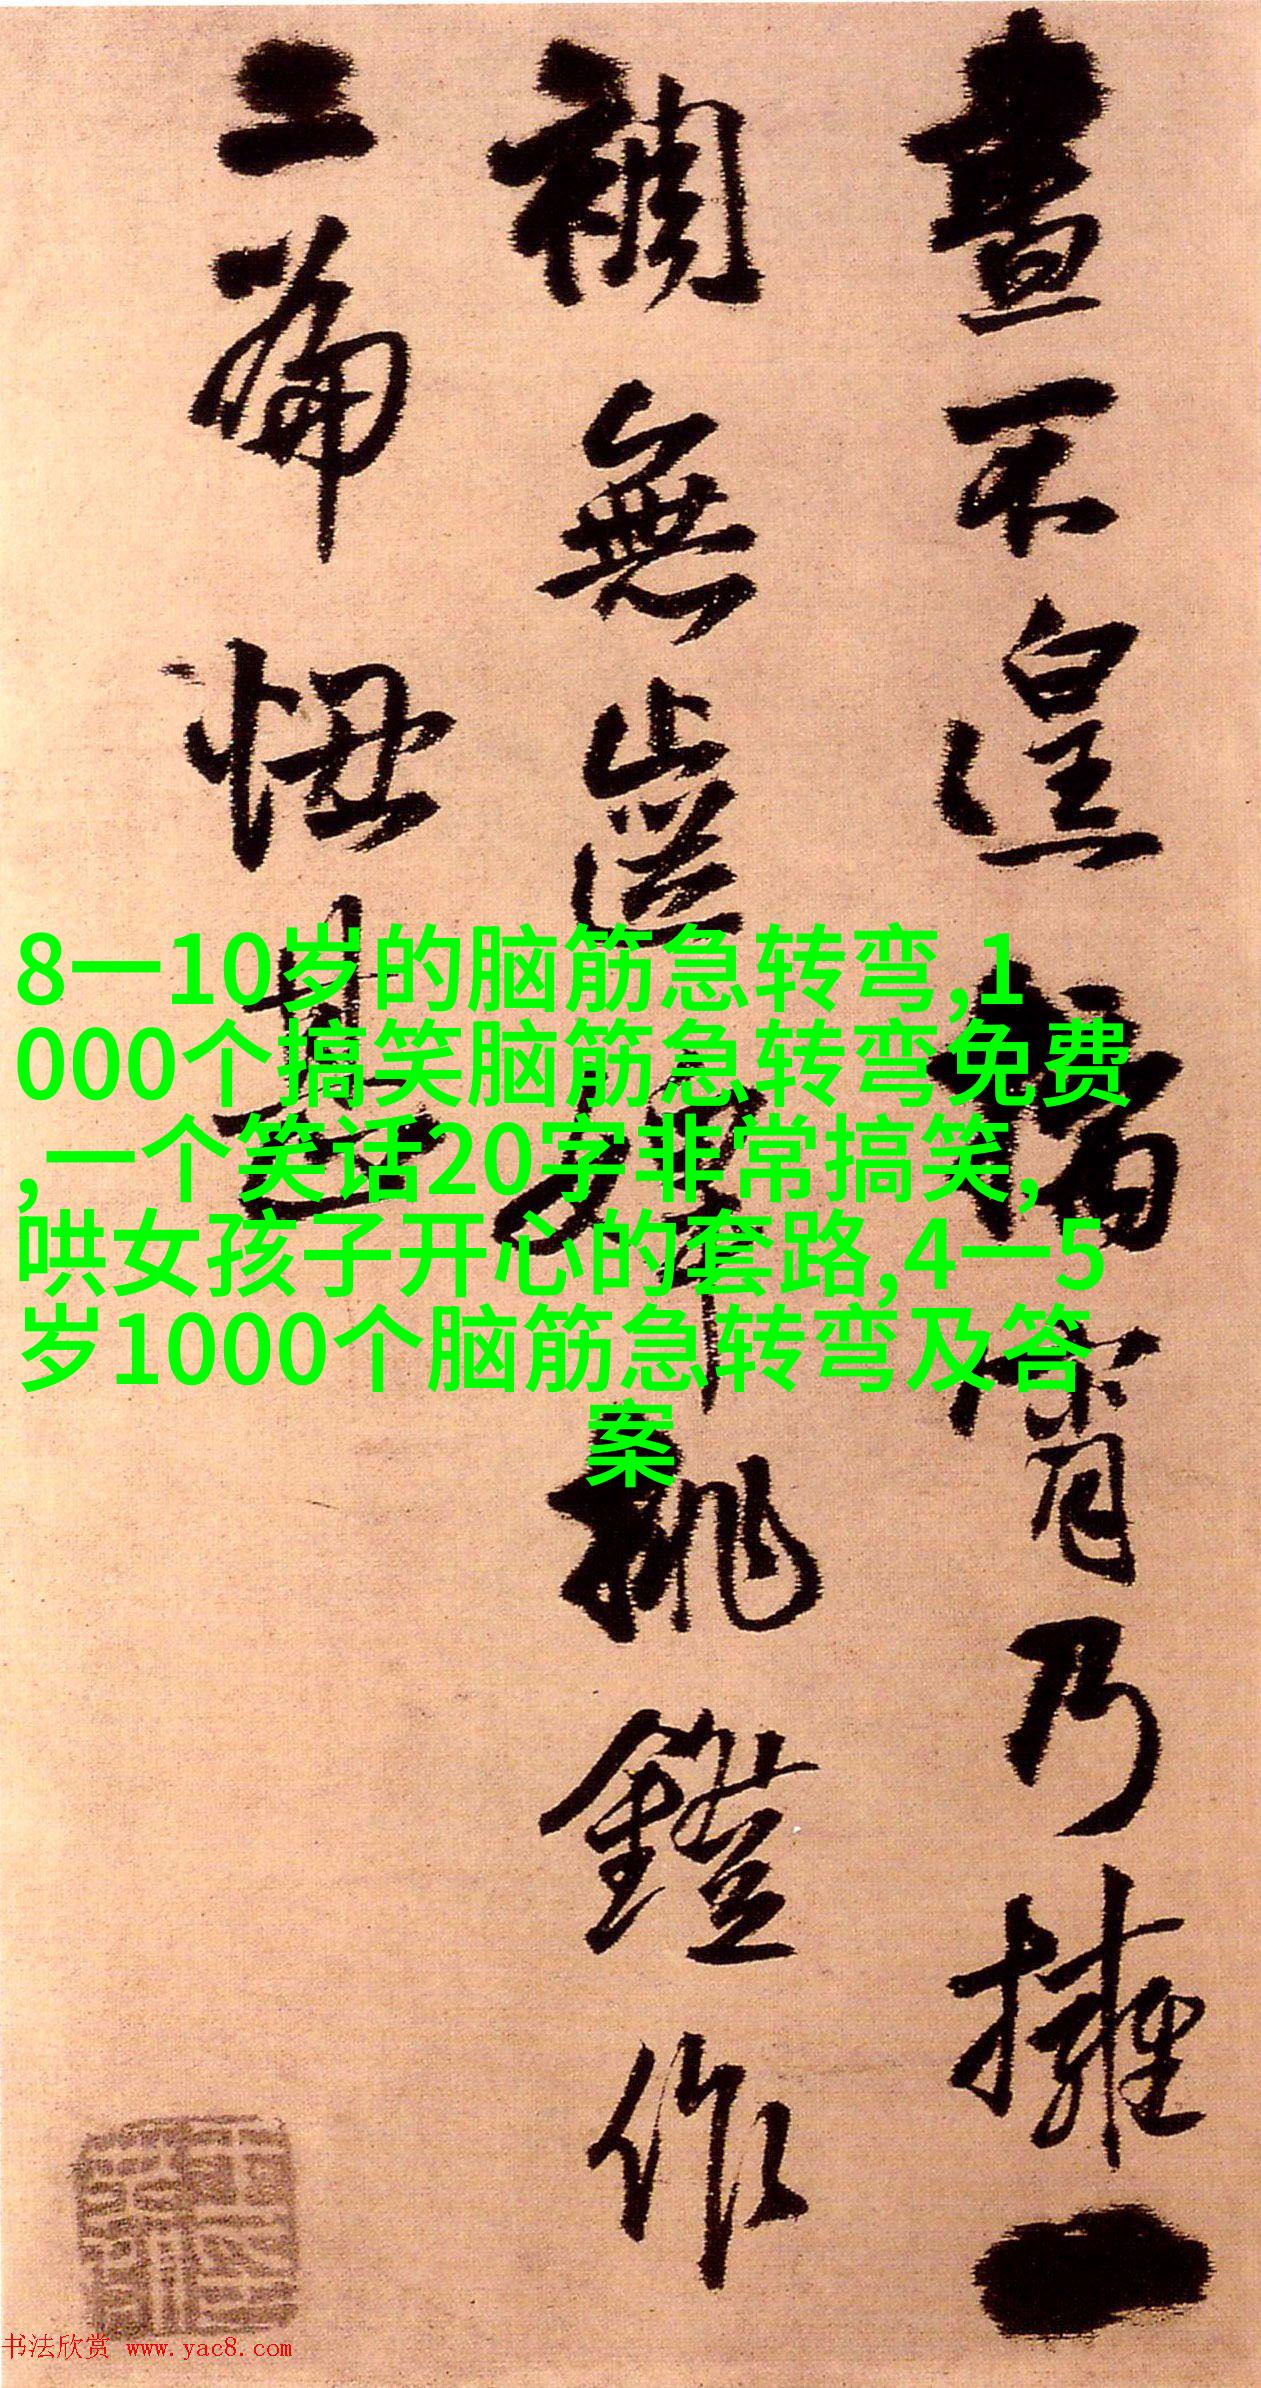 晝不遑宵乃擁一
裯無婢挑鐙作
二篇
8一10岁的脑筋急转弯,1
000个搞笑脑筋急转弯免费
,一个笑话20字非常搞笑,
哄女孩子开心的套路,4一5
岁1000个脑筋急转弯及答
案
书法欣赏 www.yac8.com